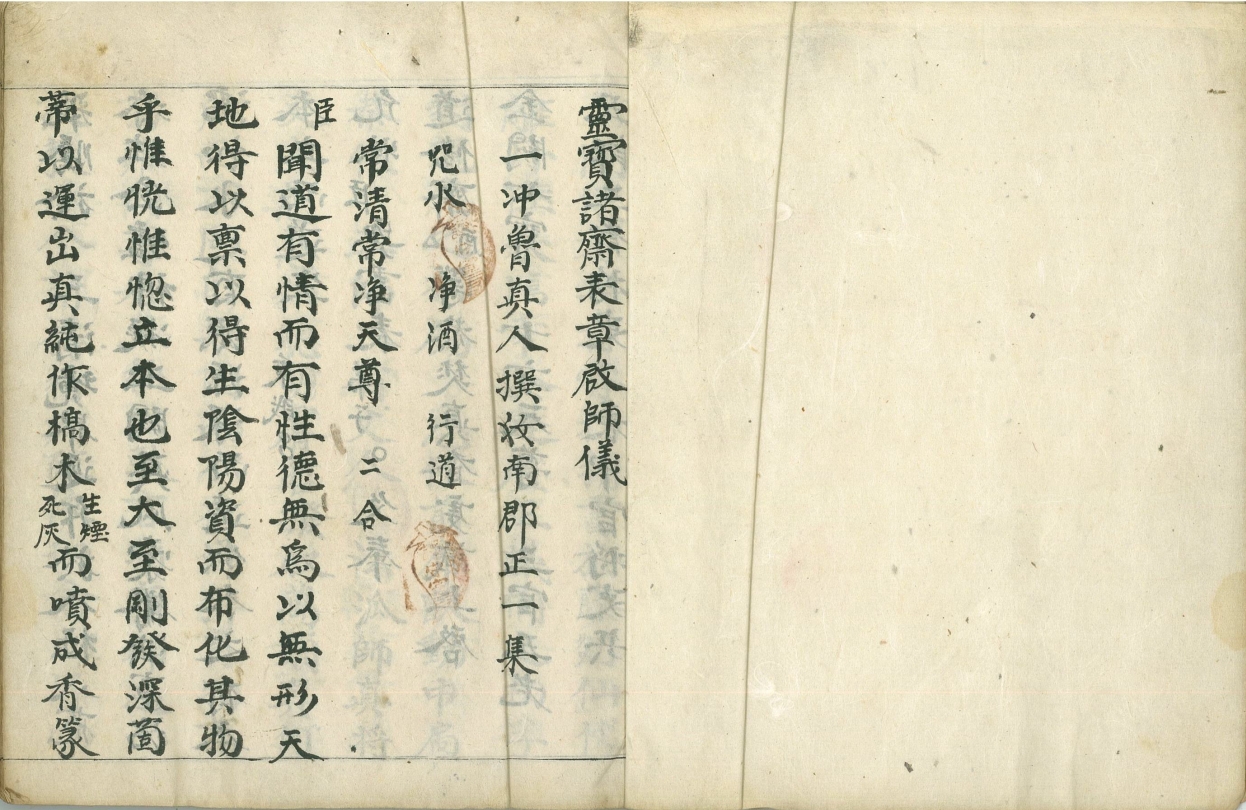 靈寶諸齋表章啟師儀
一冲魯真人撰汝南郡正一集
咒水 净酒 行道
常清常净天尊 二合
臣聞道有情而有性德無為以無形天
地得以禀以得生陰陽資而布化其物
乎惟恍惟惚立本也至大至剛發深茵
蒂以運出真純作槁木生煙死灰而噴成香篆